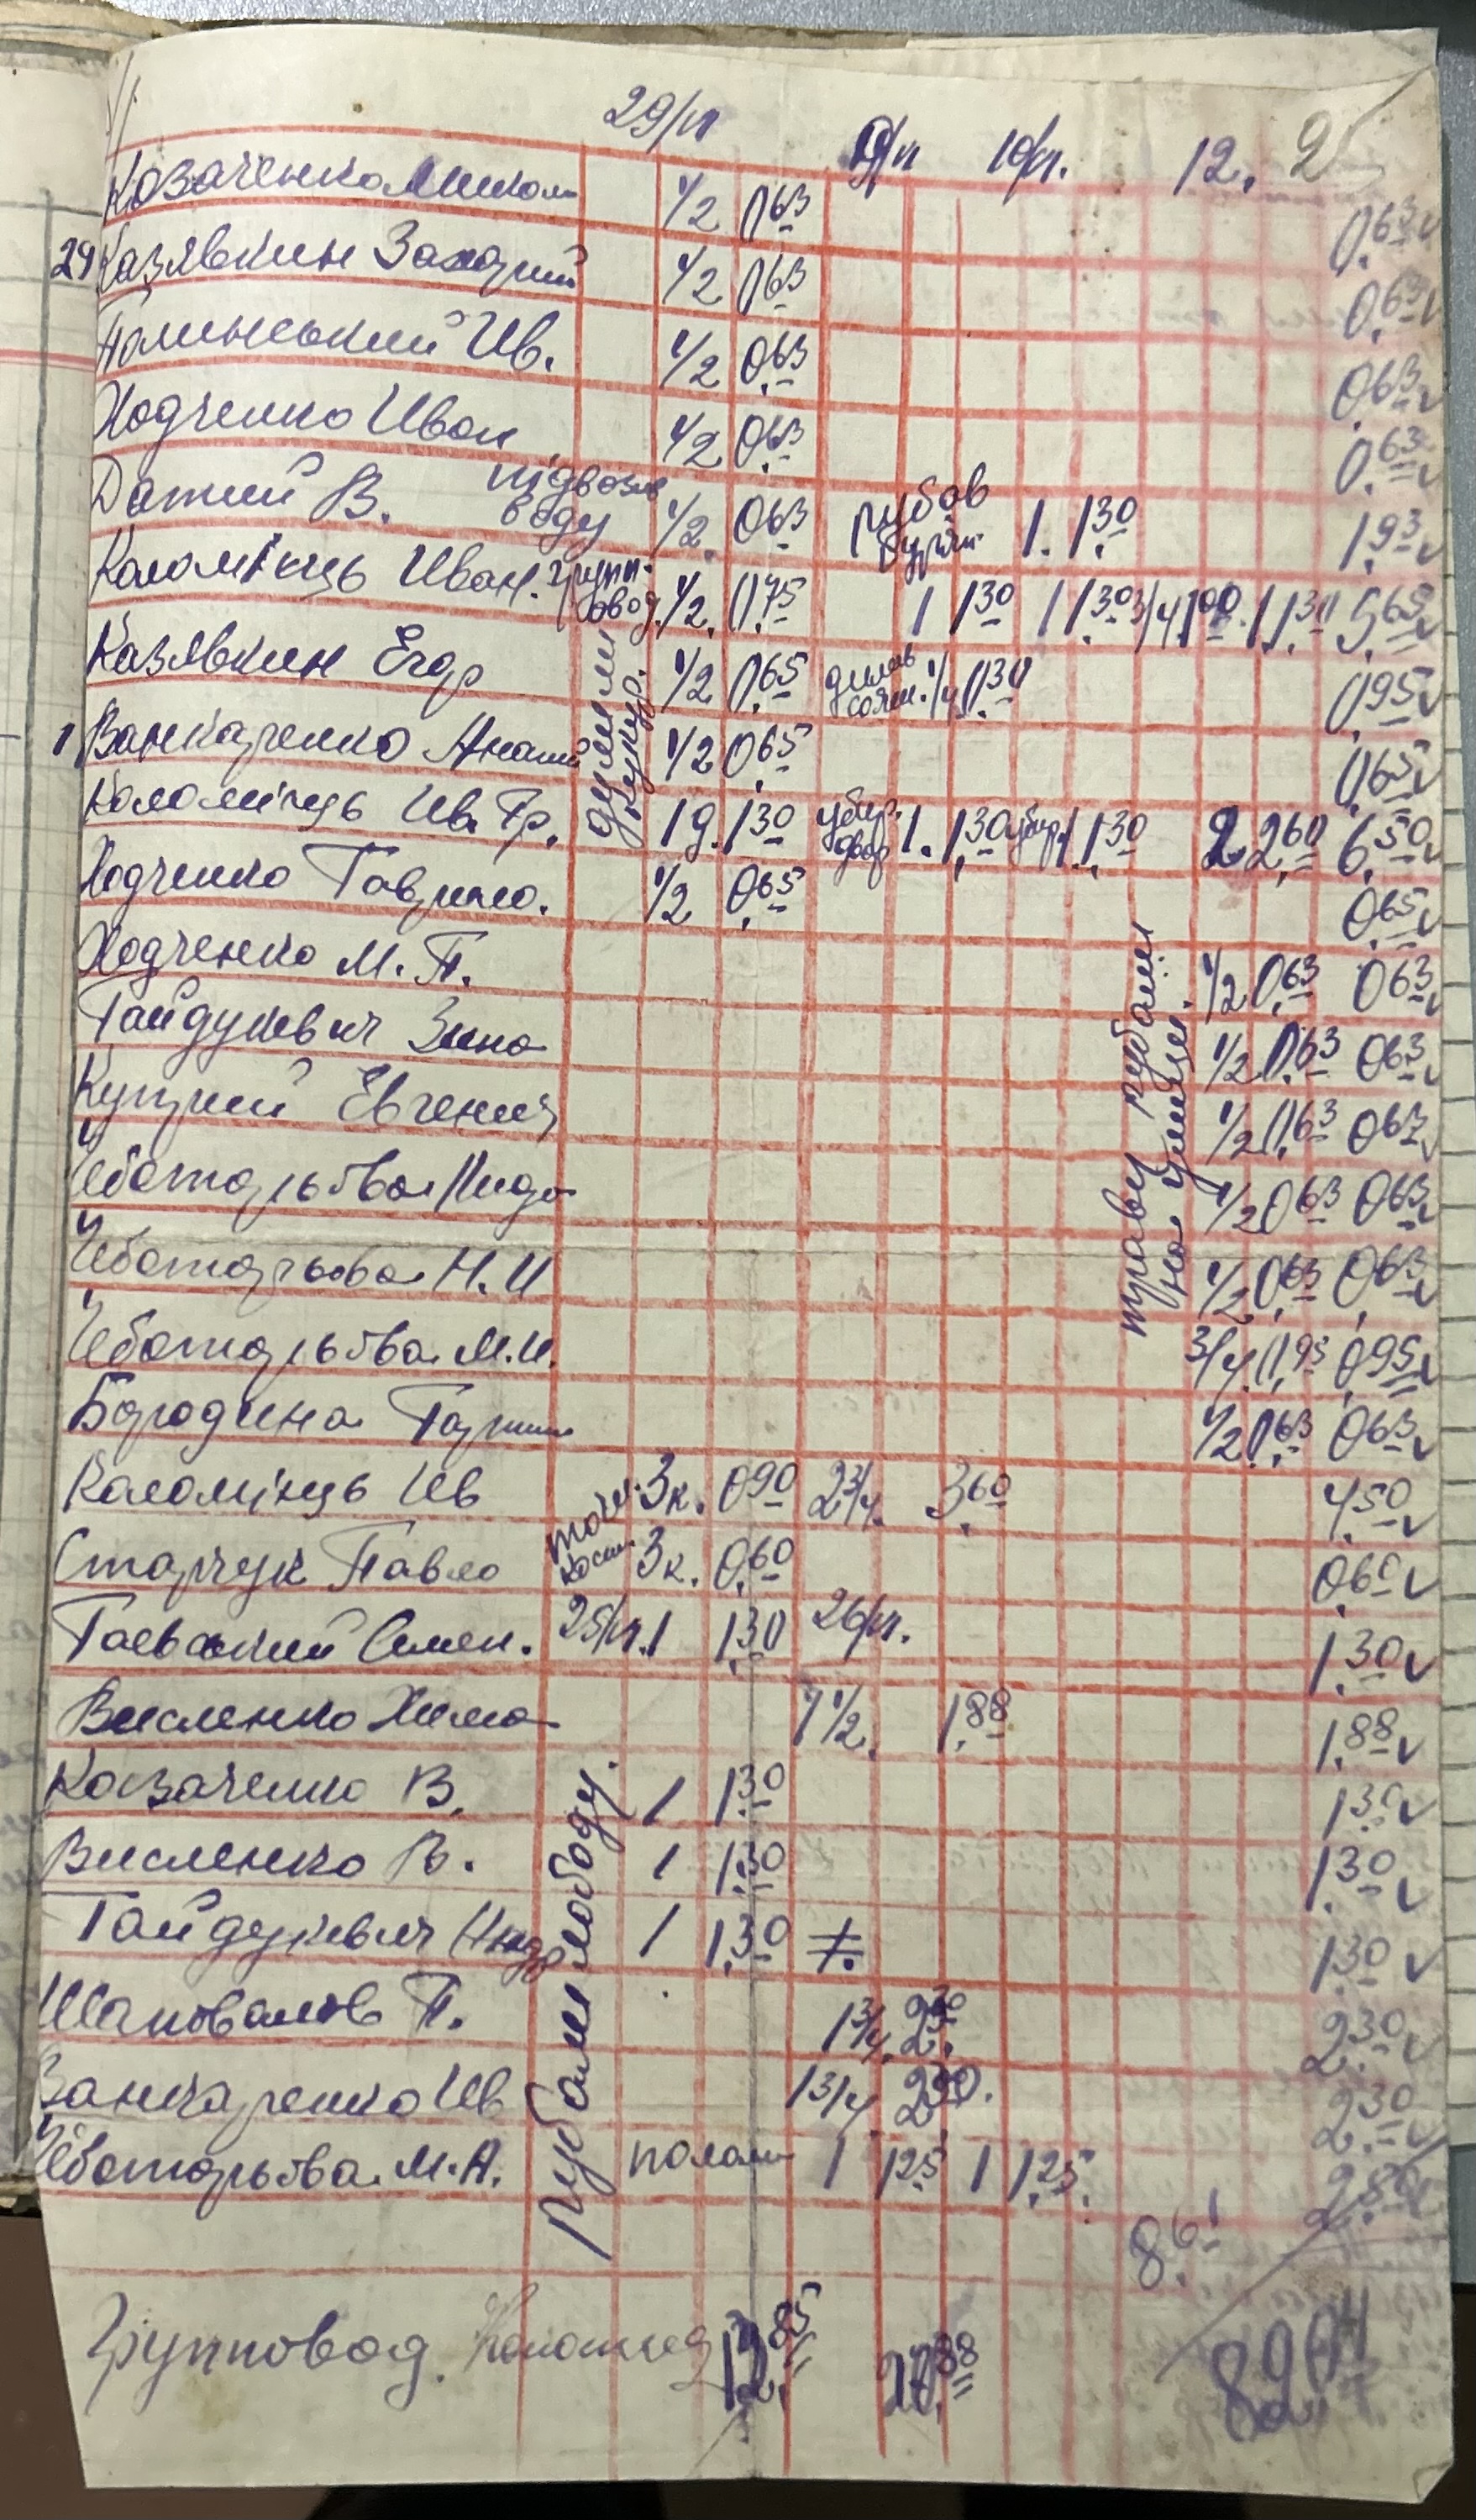 29/VI 9/VI 10/VI. 12. 2
Козаченко Микол 1/2 0,63 0,63 v
29 Казявкин Захарий 1/2 0,63 0,63 v
Полинський Ив. 1/2 0,63 0,63 v
Ходченко Иван 1/2 0,63 0,63 v
Датий В. підвозив воду 1/2. 0,63 рубав буряк 1. 1,30 1,93 v
Коломієць Иван. групповод. 1/2. 0,75 1 1,30 1 1,30 3/4 1,00. 1 1,30 5,65 v
Казявкин Егор 1/2 0,65 1/4 0,30 0,95 v
1 Ванжаренко Анатий 1/2 0,65 0,65 v
Коломієць Ив. Гр. 1 д. 1,30 убир. двор 1. 1,30 убир. 1 1,30 2 2,60 6,50 v
Ходченко Гаврило. 1/2 0,65 0,65 v
Ходченко М. П. 1/2 0,63 0,63 v
Гайдукевич Зина 1/2 0,63 0,63 v
Куцрий Евгения 1/2 0,63 0,63 v
Чеботарьова Лида 1/2 0,63 0,63 v
Чеботарьова Н. И 1/2 0,63 0,63 v
траву рубали на улице.
Чеботарьова М.И. 3/4 0,95 0,95 v
Бородина Гарпин 1/2 0,63 0,63 v
Коломієць Ив 3 к. 0,90 2 3/4. 3,60 4,50 v
Старчук Павло 3 к. 0,60 0,60 v
Гаевский Семен. 25/VI. 1 1,30 26/VI. 1,30 v
Висленко Хима 1 1/2. 1,88 1,88 v
Козаченко В. 1 1,30 1,30 v
Висленко В. 1 1,30 1,30 v
Гайдукевич Андр 1 1,30 1,30 v
рубали лободу.
Шаповалов П. 1 3/4. 2,30 2,30 v
Ванжаренко Ив 1 3/4 2,30. 2,30 v
Чеботарьова. М.А. полола 1 1,25 1 1,25. 2,50
8,61
Групповод. 12,85 27,88 82,04